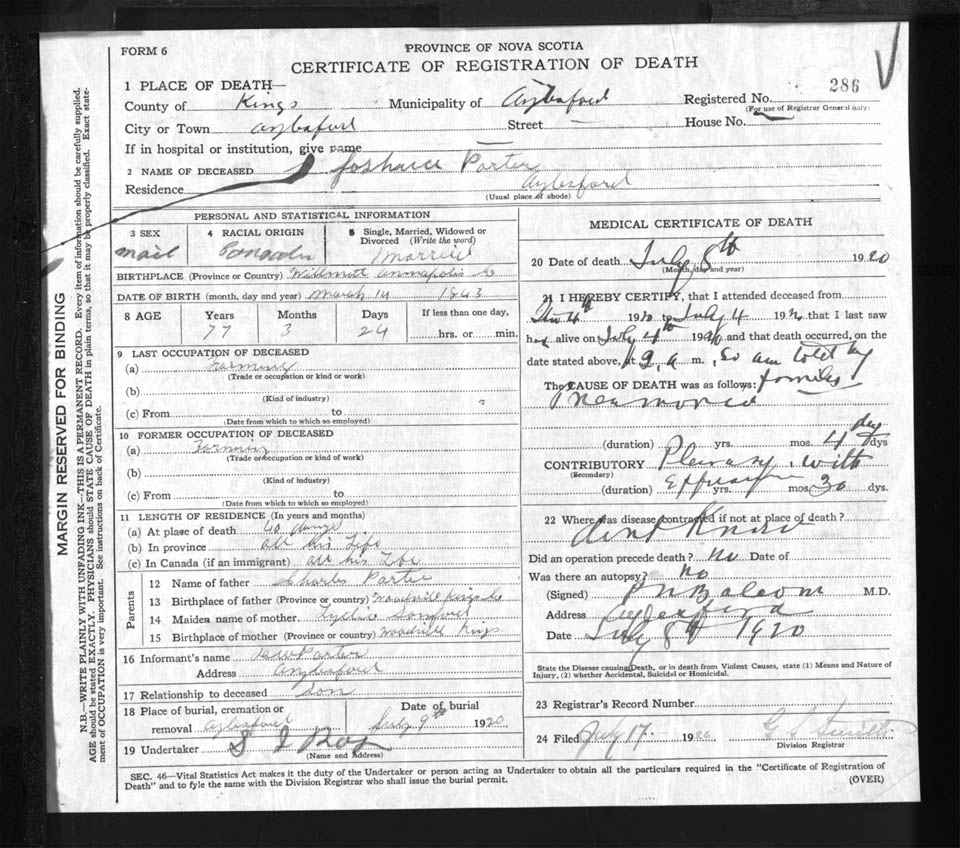 FORM 6
PROVINCE OF NOVA SCOTIA
CERTIFICATE OF REGISTRATION OF DEATH
286
1 PLACE OF DEATH—
County of Kings Municipality of Aylesford Registered No.
(For use of Registrar General only)
City or Town Street — House No.
If in hospital or institution, give name —
2 NAME OF DECEASED Porter
Residence Aylesford
(Usual place of abode)
PERSONAL AND STATISTICAL INFORMATION
3 SEX
4 RACIAL ORIGIN
5 Single, Married, Widowed or Divorced (Write the word)
mail
Married
BIRTHPLACE (Province or Country) Willmott Annapolis Co
DATE OF BIRTH (month, day and year) March 14 1843
8 AGE Years Months Days If less than one day,
77 3 24 hrs. or min.
9 LAST OCCUPATION OF DECEASED
(a) Farming
(Trade or occupation or kind or work)
(b)
(Kind of industry)
(c) From to
(Date from which to which so employed)
10 FORMER OCCUPATION OF DECEASED
(a)
(Trade or occupation or kind of work)
(b)
(Kind of industry)
(c) From to
(Date from which to which so employed)
11 LENGTH OF RESIDENCE (In years and months)
(a) At place of death 40
(b) In province all his Life
(c) In Canada (if an immigrant) all his Life
Parents
12 Name of father Charles Porter
13 Birthplace of father (Province or country) Kings Co
14 Maiden name of mother
15 Birthplace of mother (Province or country) Woodville Kings
16 Informant's name Porter
Address
17 Relationship to deceased Son
18 Place of burial, cremation or removal
Date of burial
July 9th 1920
19 Undertaker
(Name and Address)
MEDICAL CERTIFICATE OF DEATH
20 Date of death July 8th 1920
(Month, day and year)
21 I HEREBY CERTIFY, that I attended deceased from
4th 19 to July 4 19 that I last saw
h alive on July 4th 19 and that death occurred, on
date stated above, at 9 a m. So am told by
The CAUSE OF DEATH was as follows: families
Pneumonia
(duration) yrs. mos. 4 days dys
CONTRIBUTORY Pleurisy with
(Secondary)
Effusion
(duration) yrs. mos. 30 dys.
22 Where was disease contracted if not at place of death?
dont Know
Did an operation precede death? No Date of
Was there an autopsy? No
(Signed) Balcom M.D.
Address Aylesford
Date July 8th 1920
State the Disease causing Death, or in death from Violent Causes, state (1) Means and Nature of
Injury, (2) whether Accidental, Suicidal or Homicidal.
23 Registrar's Record Number
24 Filed July 17. 1920
Division Registrar
SEC. 46—Vital Statistics Act makes it the duty of the Undertaker or person acting as Undertaker to obtain all the particulars required in the "Certificate of Registration of
Death" and to fyle the same with the Division Registrar who shall issue the burial permit.
(OVER)
MARGIN RESERVED FOR BINDING
N.B.—WRITE PLAINLY WITH UNFADING INK—THIS IS A PERMANENT RECORD. Every item of information should be carefully supplied.
AGE should be stated EXACTLY. PHYSICIANS should STATE CAUSE OF DEATH in plain terms, so that it may be properly classified. Exact state-
ment of OCCUPATION is very important. See instructions on back of Certificate.